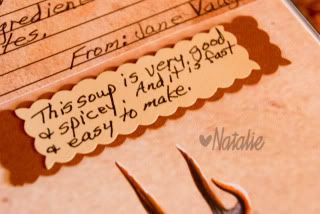 ingredients
tes.
From: Jane
This soup is very good
& spicey! And it is fast
& easy to make.
Natalie